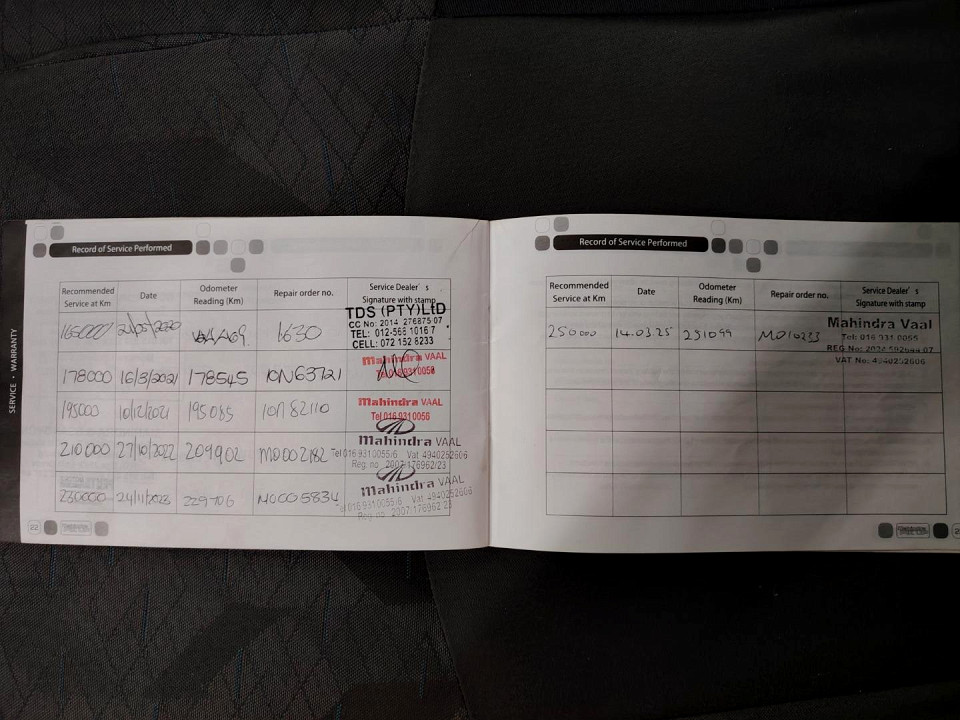 SERVICE - WARRANTY
Record of Service Performed
Recommended Service at Km
Date
Odometer Reading (Km)
Repair order no.
Service Dealer's Signature with stamp
1630
TDS (PTY)LtD
CC No: 2014 276875 07
TEL: 012-566 1016 7
CELL: 072 152 8233
178000 16/3/2021 178545 ION63721
Mahindra VAAL
Tel 016 931 0056
195000 10/12/2021 195085 ION 82110
Mahindra VAAL
Tel 016 931 0056
210 000 27/10/2022 209902 M0002182
Mahindra VAAL
Tel 016 931 0055/6 Vat 4940252606
Reg. no 2007/176962/23
230000 24/11/2023 229706 M0005834
Mahindra VAAL
Tel 016 931 0055/6 Vat 4940252606
Reg no 2007/176962/23
22
Record of Service Performed
Recommended Service at Km
Date
Odometer Reading (Km)
Repair order no.
Service Dealer's Signature with stamp
250000 14.03.25 251099 M010233
Mahindra Vaal
Tel: 016 931 0055
VAT No: 4940252606